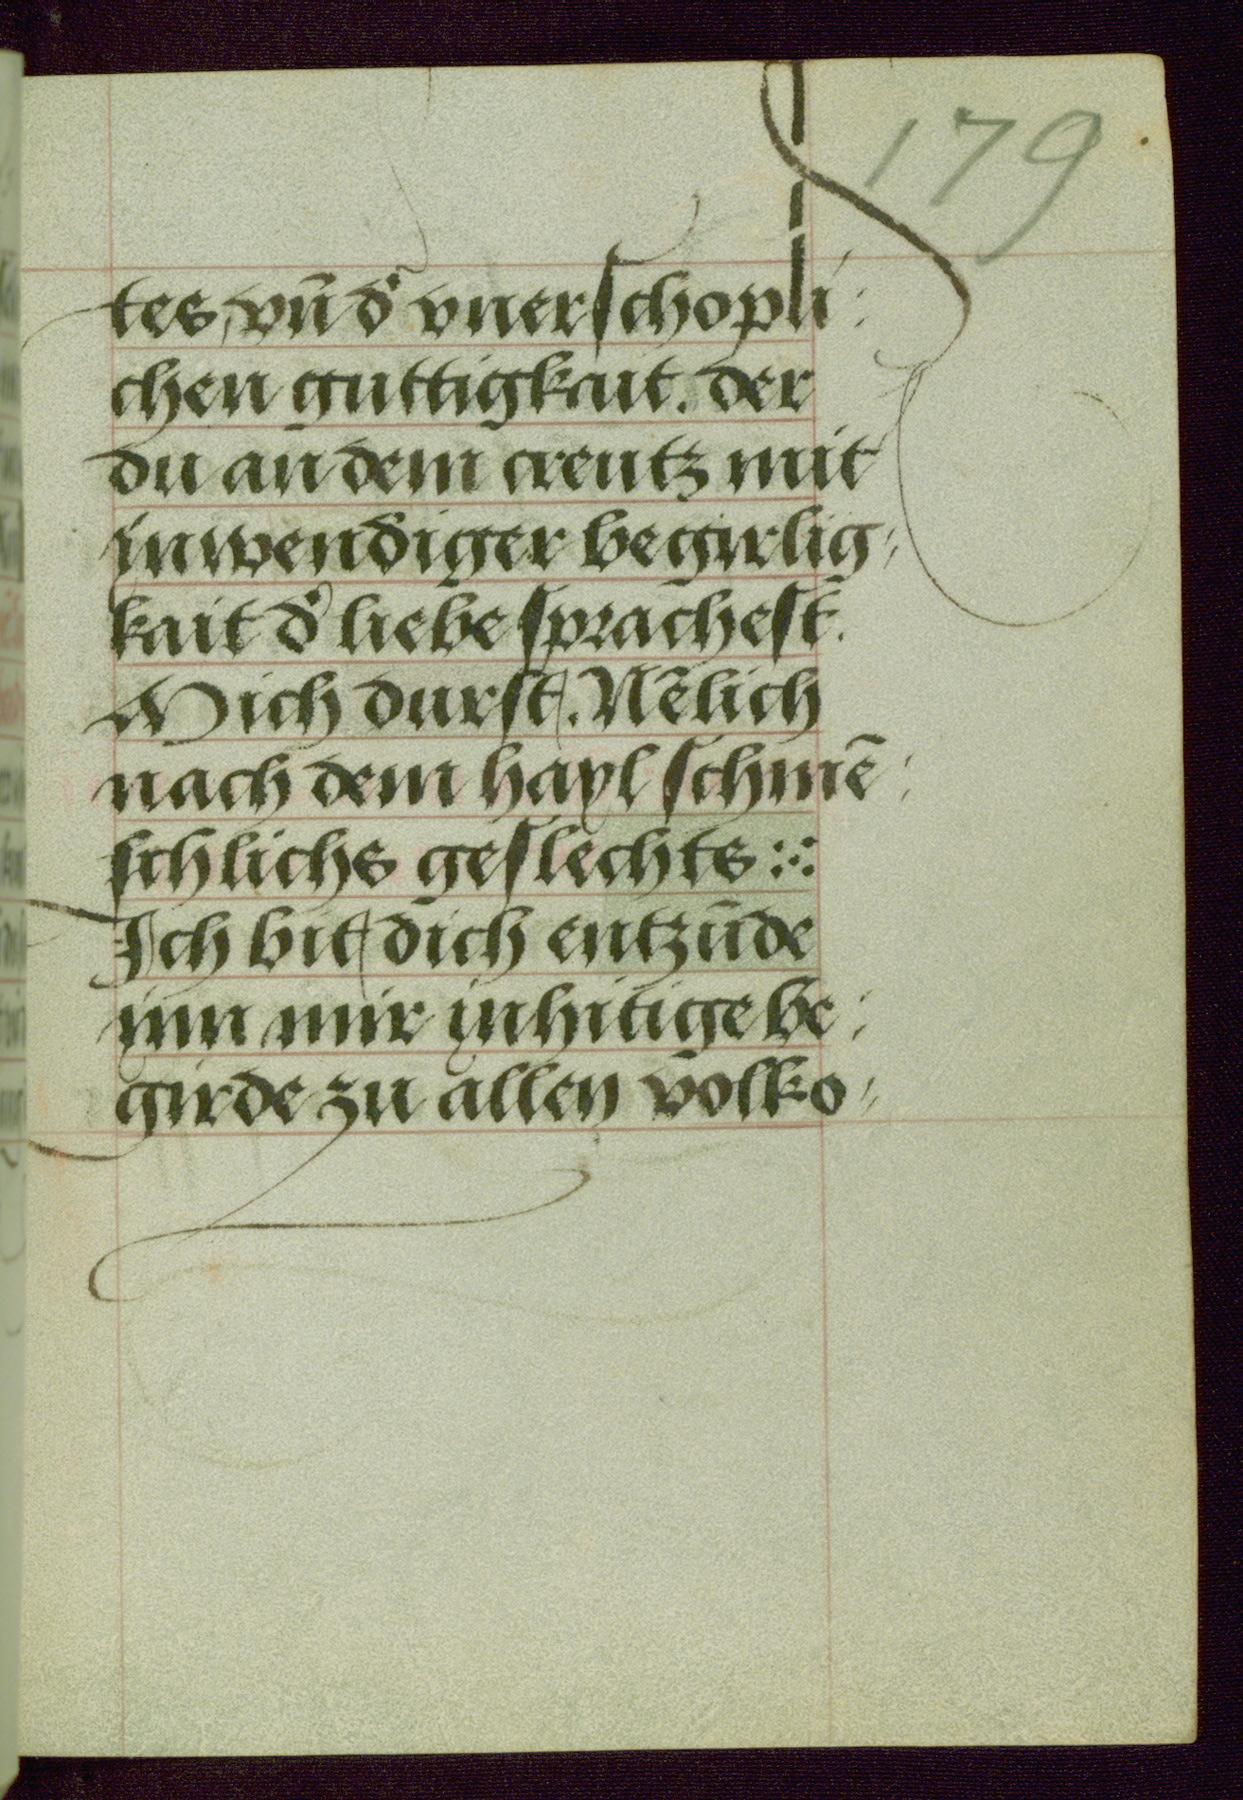 179
tes, vn̄ d' vnerſchopli:
chen guttigkait. der
du an dem creutz mit
inwendiger begirlig⸗
kait d' liebe ſpracheſt.
Mich durſt. Nēlich
nach dem hayl ſchmē:
ſchlichs geſlechts :·:
Ich bit dich entzūde
inn mir inhitige be:
girde zu allen volko⸗